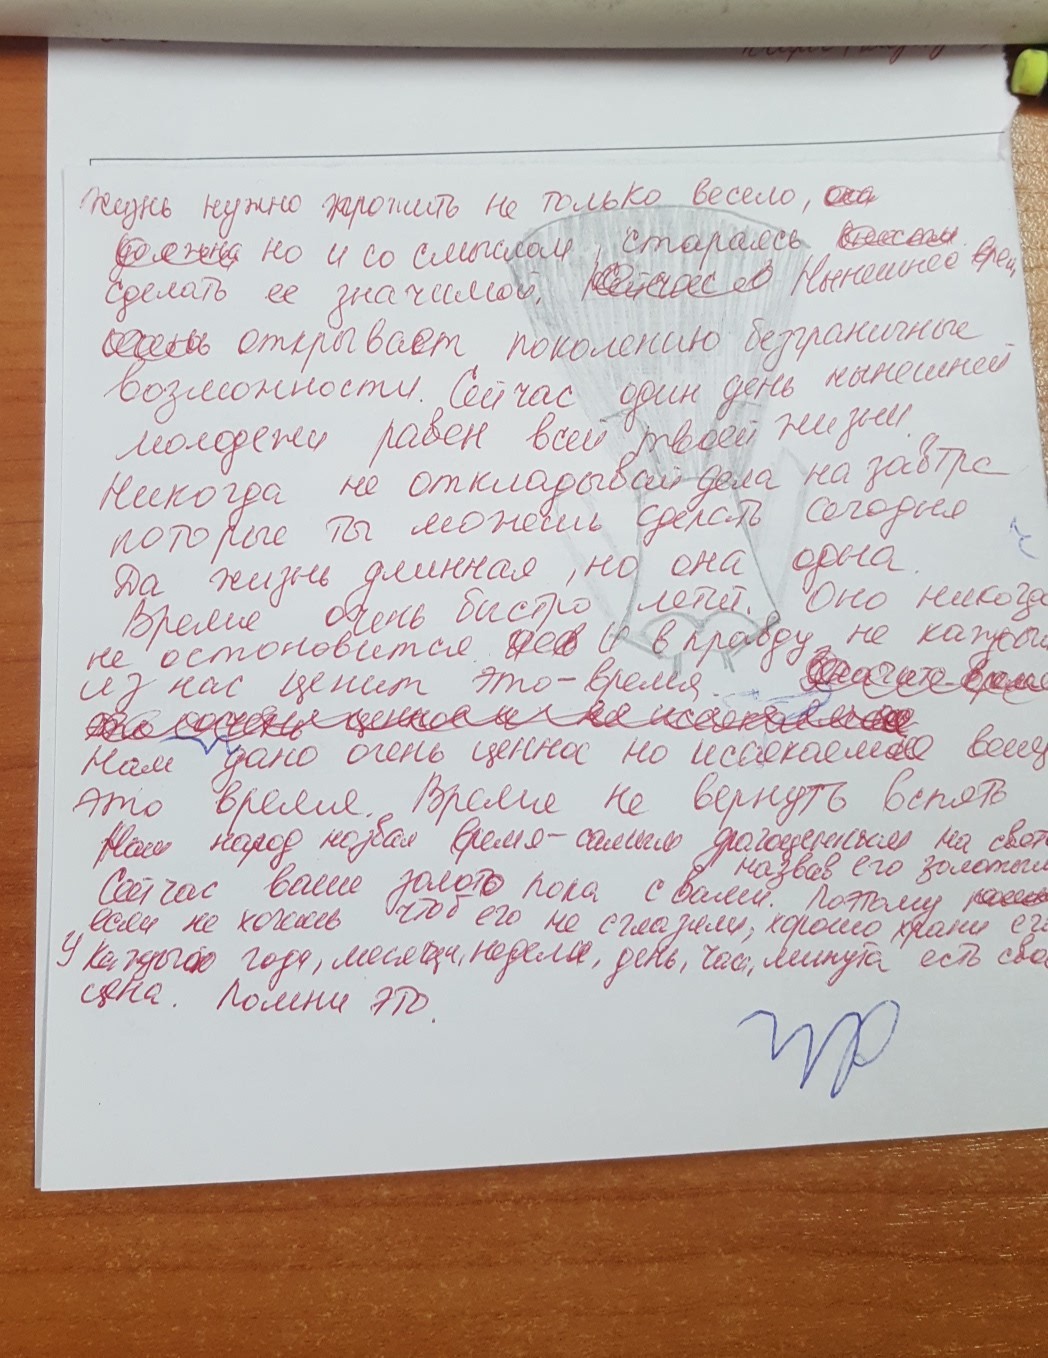 Жизнь нужно прожить не только весело, она
должна но и со смыслом, стараясь
сделать ее значимой. Сейчас в Нынешнее врем
открывает поколению безграничные
возможности. Сейчас один день нынешней
молодежи равен всей твоей жизни.
Никогда не откладывай дела на завтра
которые ты можешь сделать сегодня
Да жизнь длинная, но она одна.
Время очень быстро летит. Оно никогда
не остоновится. И вправду не каждый
из нас ценит это-время. Значит время
это очень ценное и не иссекаемое
Нам дано очень ценное но иссекаемое вещь
это время. Время не вернуть вспять
Наш народ назвал время-самым драгоценным на свете
назвав его золотым
Сейчас ваше золото пока с вами. Поэтому
если не хочешь чтоб его не сглазили, хорошо храни его
У каждого года, месяца, недели, день, час, минута есть своя
цена. Помни это.